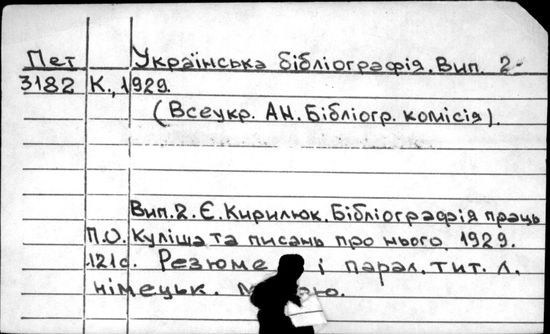 Пет Українська бібліографія. Вип. 2-
3182 К., 1929.
(Всеукр. АН. Бібліогр. комісія).
Вип. 2. Є. Кирилюк. Бібліографія праць
П.О. Куліша та писань про нього, 1929.
121с. Резюме і парал. тит. л.
німецьк.